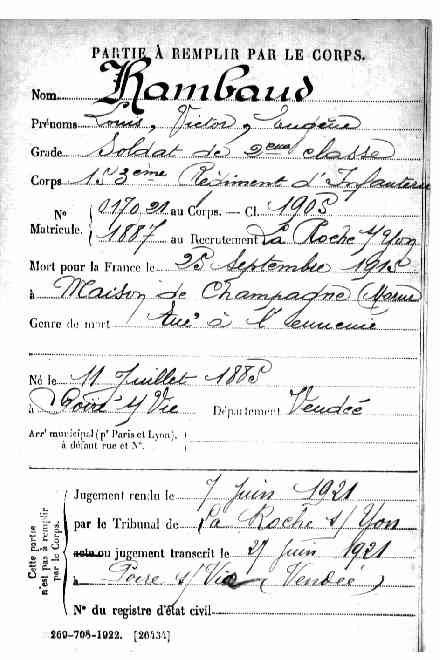 PARTIE À REMPLIR PAR LE CORPS.
Nom Rambaud
Prénoms Louis, Victor, Eugène
Grade Soldat de 2eme classe
Corps 153eme Régiment d'Infanterie
N° 017021 au Corps. — Cl. 1905
Matricule. 1887 au Recrutement La Roche s/Yon
Mort pour la France le 25 Septembre 1915
à Maison de Champagne (Marne
Genre de mort Tué à l'ennemi
Né le 11 Juillet 1885
à Poiré s/Vie Département Vendée
Arrt municipal (pr Paris et Lyon),
à défaut rue et N°.
Cette partie
n'est pas à remplir
par le Corps.
Jugement rendu le 7 Juin 1921
par le Tribunal de La Roche s/Yon
acte ou jugement transcrit le 27 Juin 1921
à Poire s/Vie (Vendée)
N° du registre d'état civil
269-708-1922. [26434]